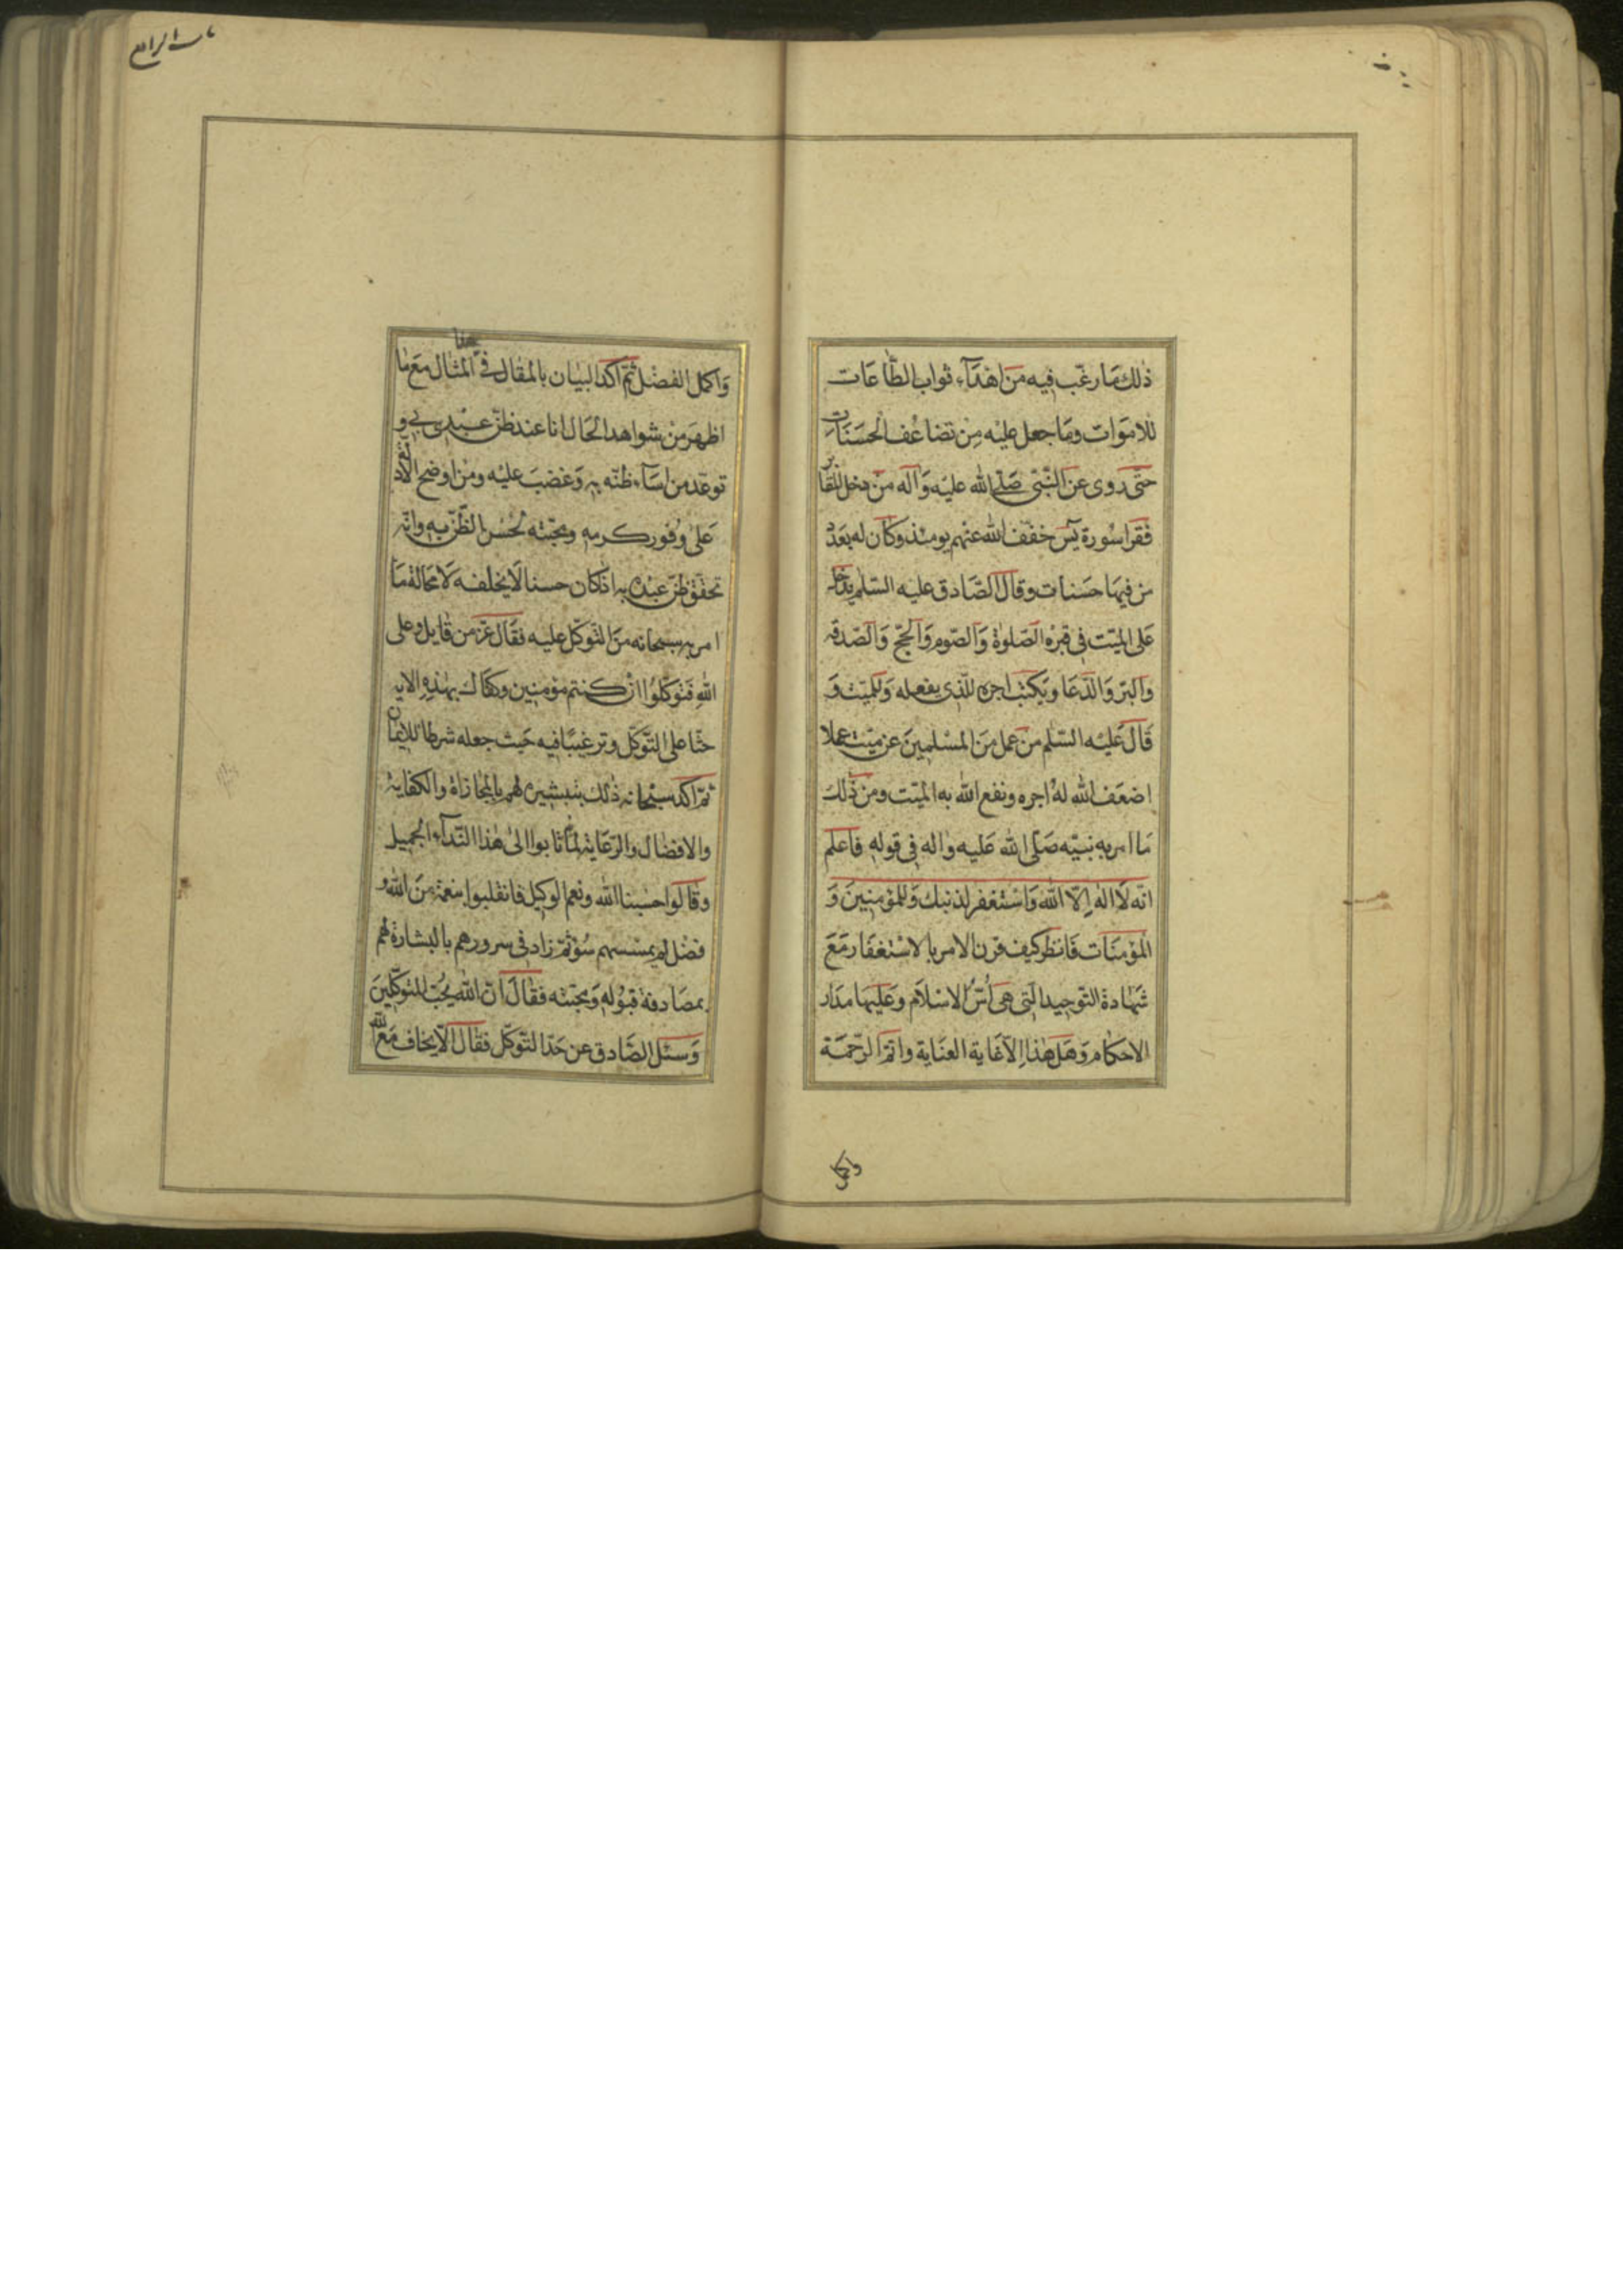 ذٰلك مَا رغّب فيه مَن اهْدَآء ثواب الطّاعَات
للامَوات ومَا جعل عليْه مِن تضاعُف الحسَنَات
حتّى روى عن النّبىّ صَلّى الله عليْه وَآله مَن دخل المقابر
فَقرا سُورة يٓس خفّف الله عنْهم يومئذ وكان له بعَدد
من فيهَا حسَنات وقال الصّادق عليه السّلم يدخل
عَلى الميّت فى قبرْه الصّلوٰة وَالصّوم وَالحجّ وَالصّدقه
والبرّ وَالدّعَا ويَكتب اجره للّذى يفعله وَللميّت وَ
قَال عَليْه السّلم من عمل مِنَ المسْلمينَ عن ميّت عملا
اضعَف الله لهُ اجره ونفع الله به الميّت ومن ذٰلك
مَا امر بهِ نبيّه صَلّى الله عَليه واله فى قوله فاعلم
انّه لَا اله اِلّا الله وَاسْتغفر لذنبك وَللمؤمنِينَ وَ
المؤمنَات فَانظر كيف قرن الامر بالاسْتغفَار مَعَ
شهَادة التّوحيد الّتى هى اُسّ الاسْلَام وعَليهَا مدَار
الاحكام وَهَل هٰذا اِلّا غَاية العنَاية واتمّ الرّحمَة
واكمل
باب الرابع
وَاكمل الفضْل ثمّ اكّد البيٰان بالمقال فى هذا المثٰال مَع مٰا
اظهرَ من شواهد الحَال انا عند ظنّ عبْدى بى و
توعّد من اسَآء ظنّه به وَغضبَ عليْه ومن اوضح الادلّة
عَلى وفور كرمه ومحبّته لحُسْن الظّن به وانّه
تحقّق ظنّ عبْده به اذ كان حسنا لَا يخلفه لَا محَالة مَا
امر به سبحانه منَ التّوكّل عليه فقال عزّ من قايل وعلى
الله فَتَوكّلُوا ان كنتم مؤمنين وكفٰاك بهٰذهِ الايه
حثّا على التّوكّل وترغيبًا فيه حَيث جعله شرطا للايمان
ثمّ اكّد سبْحانه ذٰلك بتبشيره لهم بالمجٰازاة والكفٰاية
والافضٰال والرّعاية لمّا ثابوا الىٰ هٰذا النّدآء الجميل
وقالوا حسْبنا الله ونعم الوكيل فانقلبوا بنعمة منَ الله و
فضْل لم يمسسهم سُوٓء ثمّ زاد فى سرورهم بالبشارة لهم
بمصَادفة قبُوله وَمحبّته فقال انّ الله يُحبّ المتوكّلينَ
وَسئل الصّادق عن حَدّ التّوكّل فقال الّا يخاف مَع الله